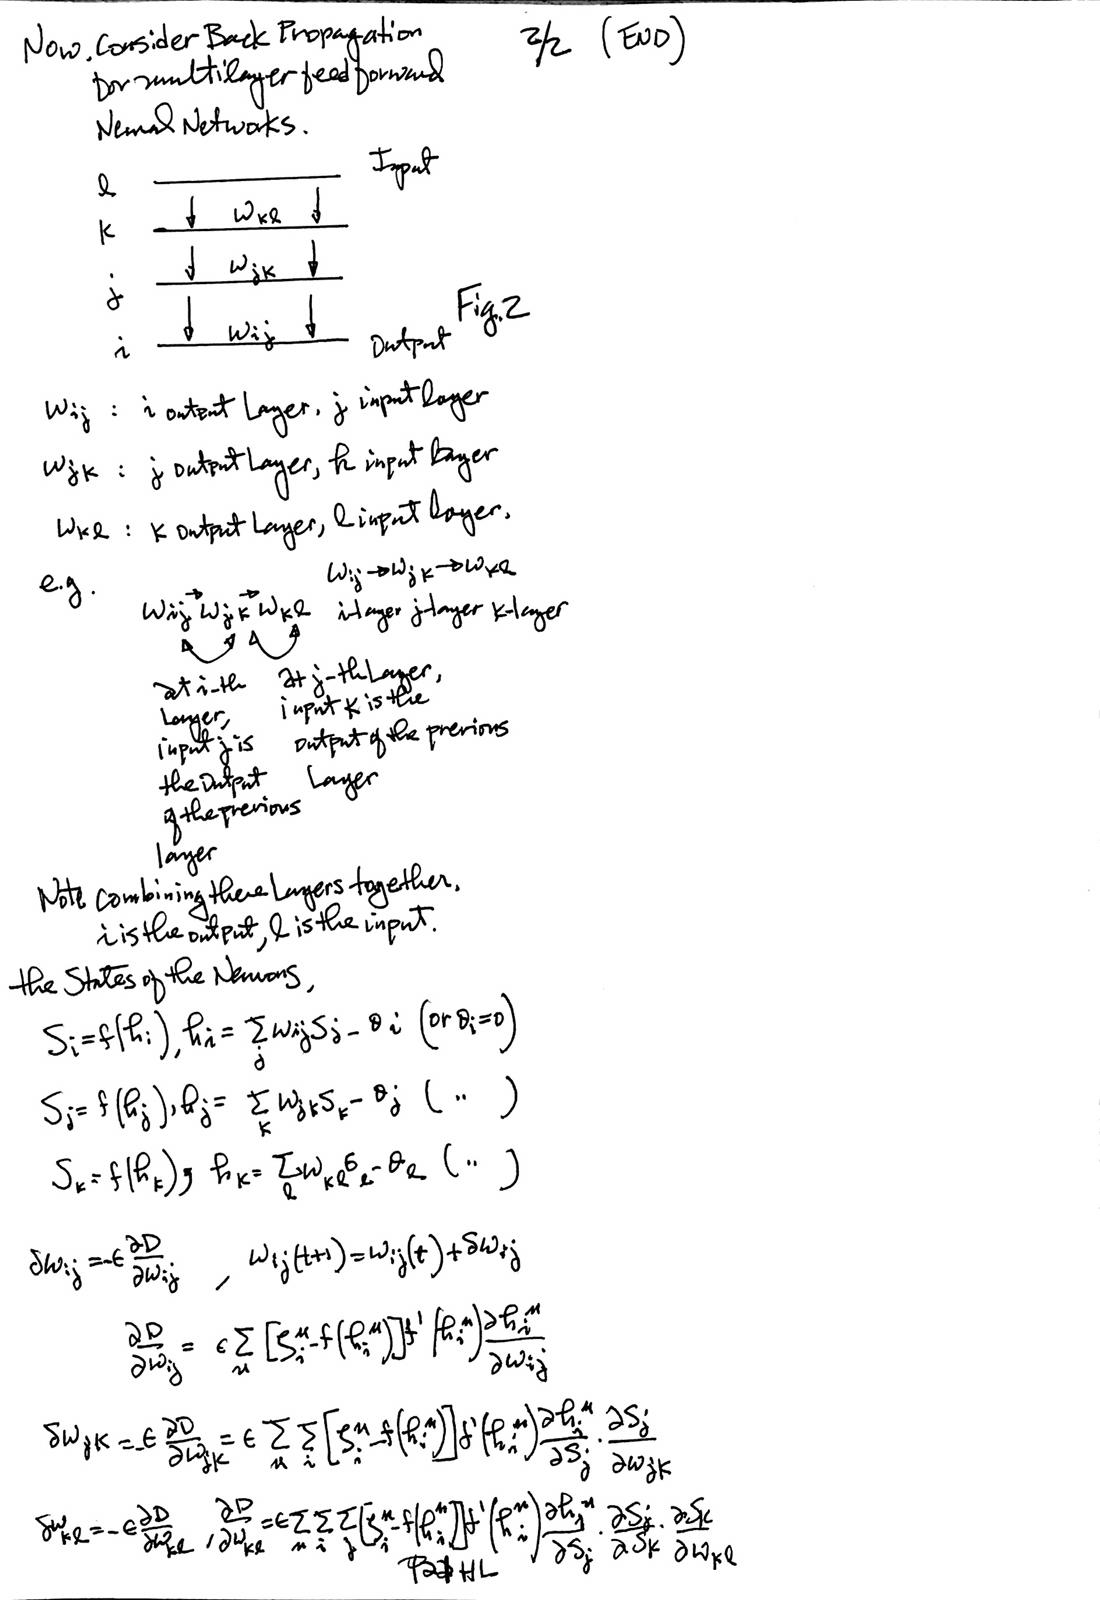 Now, Consider Back Propagation
for multilayer feedforward
Neural Networks.
2/2 (END)
l Input
w_kl
k
w_jk
j
w_ij
i Output
Fig.2
w_ij : i output Layer, j input layer
w_jk : j output Layer, k input layer
w_kl : k output Layer, l input layer.
e.g.
w_ij → w_jk → w_kl
w_ij w_jk w_kl i-layer j-layer k-layer
at i-th
Layer,
input j is
the output
of the previous
layer
at j-th Layer,
input k is the
output of the previous
Layer
Note combining these Layers together,
i is the output, l is the input.
the States of the Neurons,
S_i = f(h_i), h_i = Σ_j w_ij S_j - θ_i (or θ_i = 0)
S_j = f(h_j), h_j = Σ_k w_jk S_k - θ_j ( '' )
S_k = f(h_k), h_k = Σ_l w_kl σ_l - θ_l ( '' )
δw_ij = -ε ∂D/∂w_ij , w_ij(t+1) = w_ij(t) + δw_ij
∂D/∂w_ij = ε Σ_μ [ζ_i^μ - f(h_i^μ)] f'(h_i^μ) ∂h_i^μ/∂w_ij
δw_jk = -ε ∂D/∂w_jk = ε Σ_μ Σ_i [ζ_i^μ - f(h_i^μ)] f'(h_i^μ) ∂h_i^μ/∂S_j · ∂S_j/∂w_jk
δw_kl = -ε ∂D/∂w_kl , ∂D/∂w_kl = ε Σ_μ Σ_i Σ_j [ζ_i^μ - f(h_i^μ)] f'(h_i^μ) ∂h_i^μ/∂S_j · ∂S_j/∂S_k · ∂S_k/∂w_kl
HL